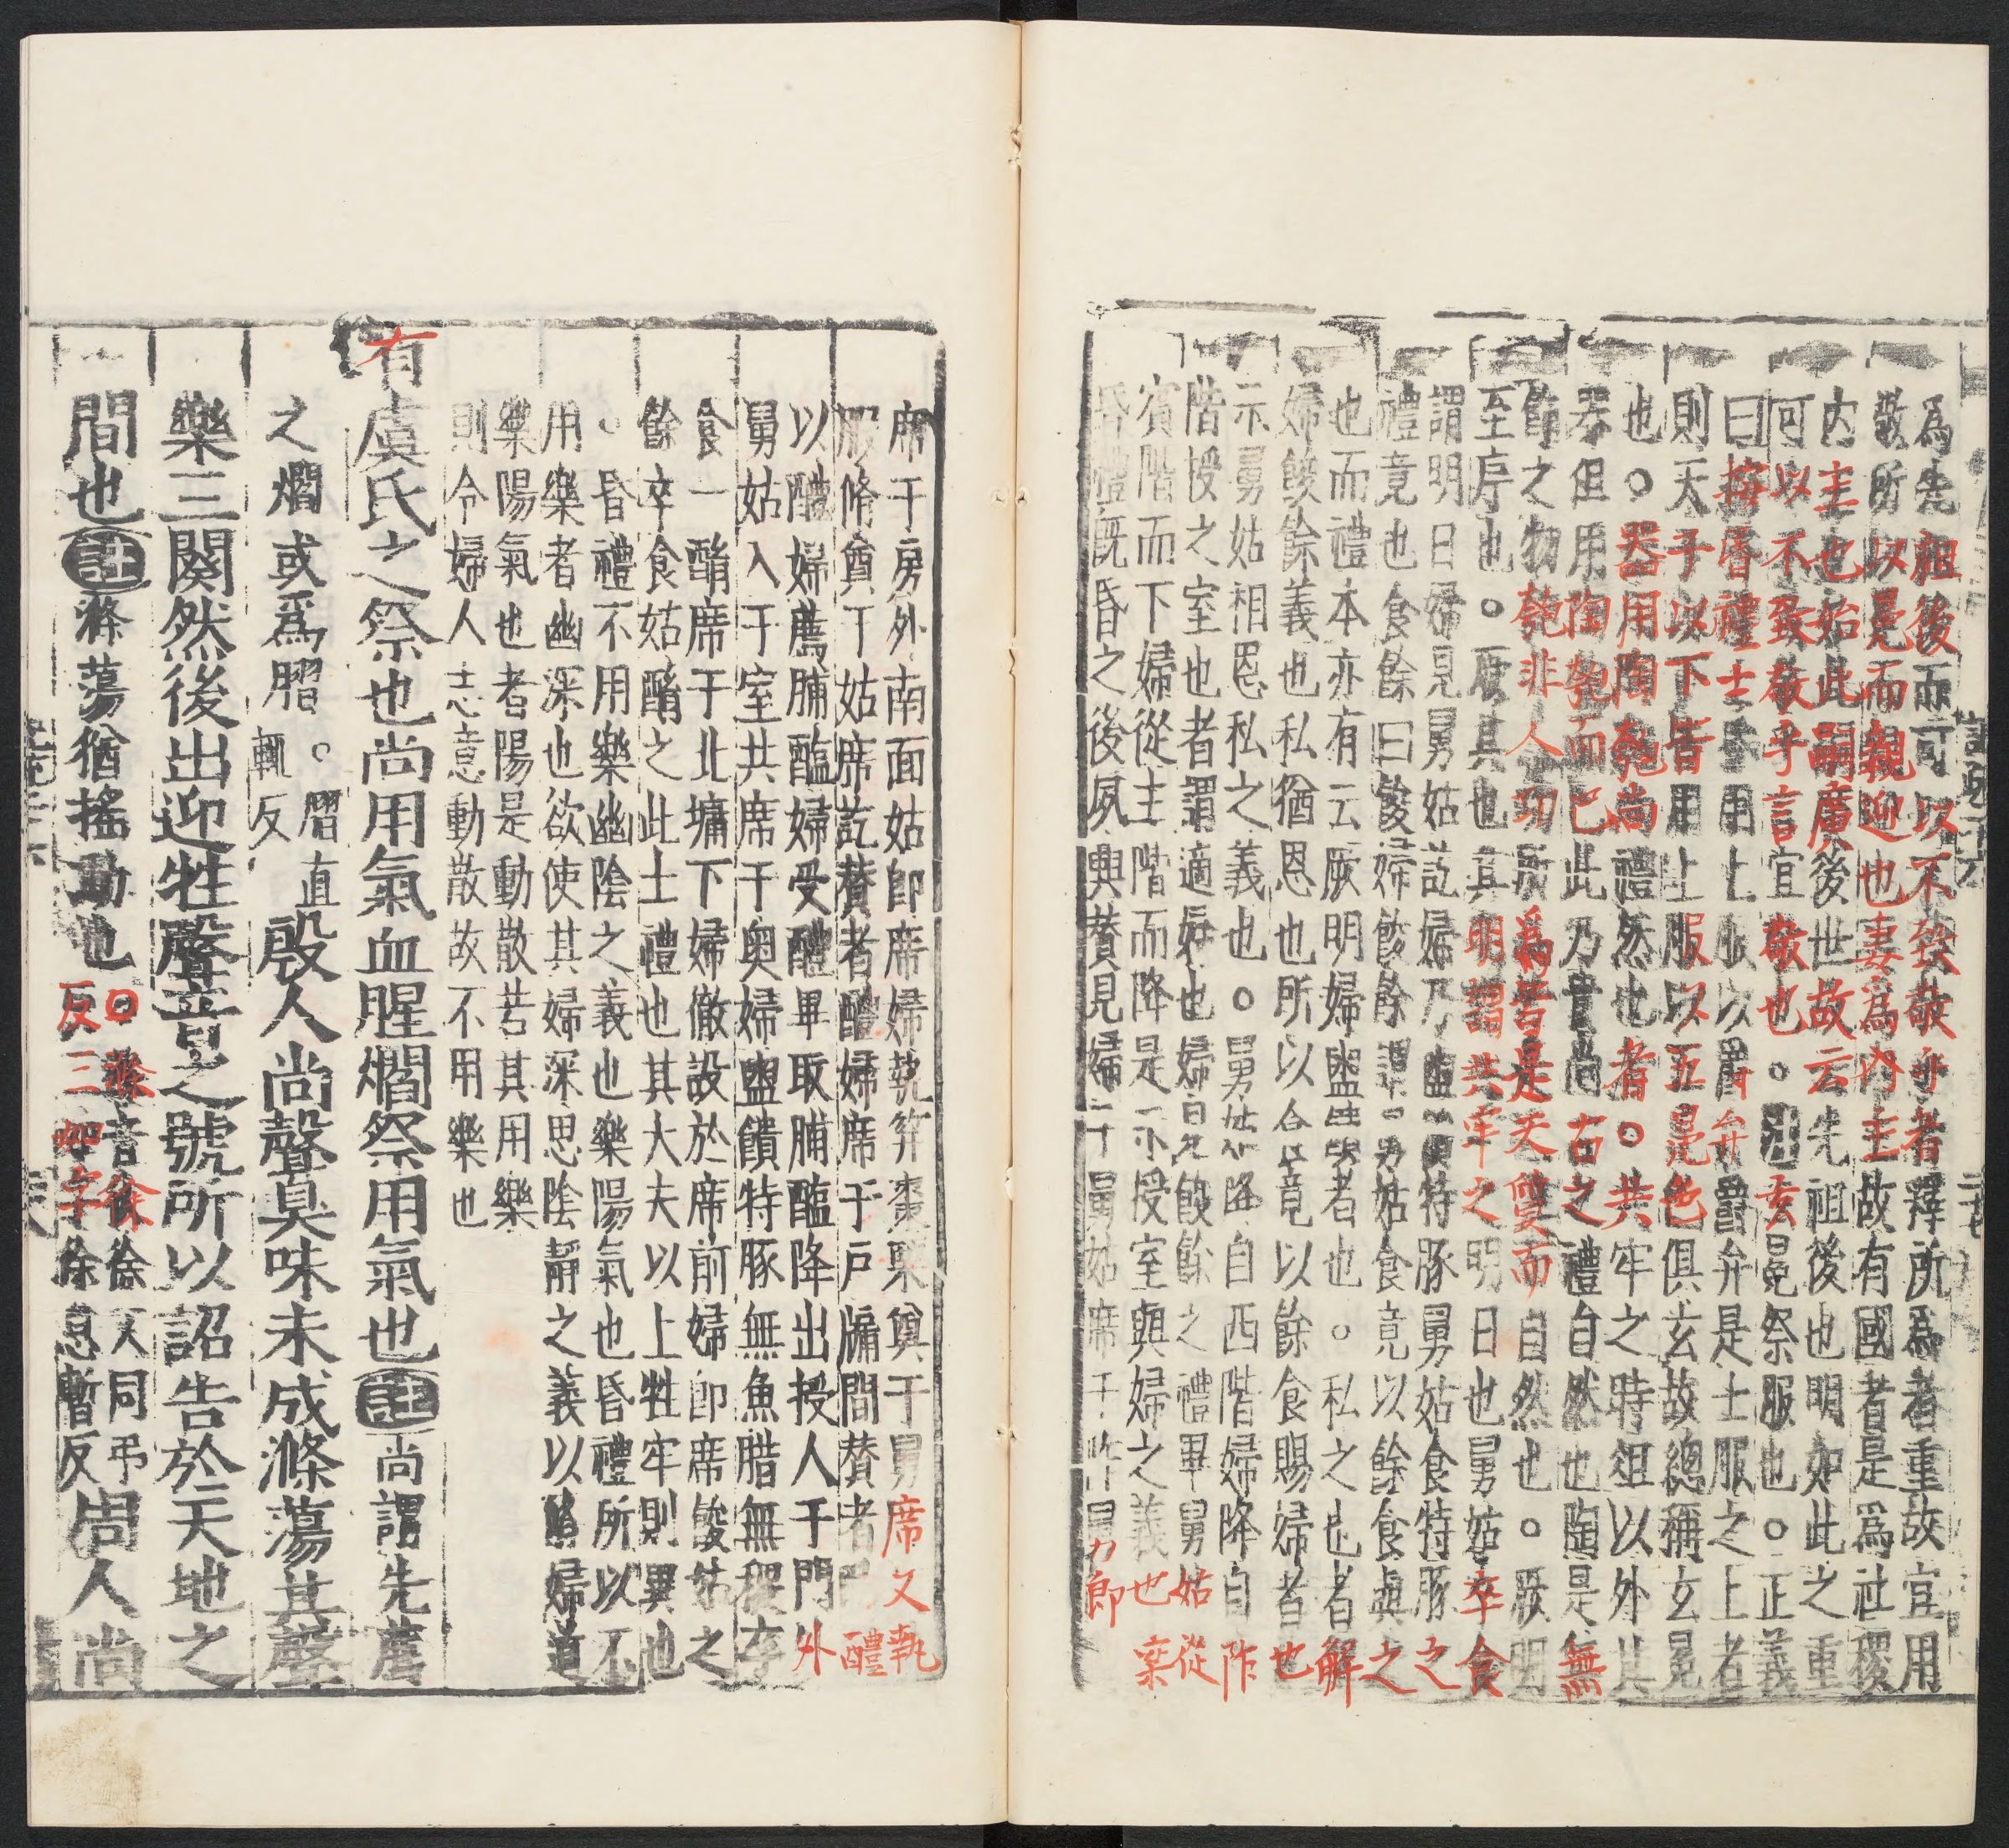 爲先祖後而可以不致敬乎者釋所爲者重故宜用
敬所以冕而親迎也妻爲內主故有國者是爲社稷
内主也始此嗣廣後世故云先祖後也明如此之重
何以不致敬乎言宜敬也。玄冕祭服也。正義
曰按昏禮士昏用上服以爵弁爵弁是士服之上者
則天子以下皆用上服以五冕色俱玄故總稱玄冕
也。器用陶匏尚禮然也者。共牢之時俎以外其
器但用陶匏而已此乃貴尚古之禮自然也陶是無
飾之物匏非人功所爲皆是天質而自然也。厥明
至序也。厥其也其明謂共牢之明日也舅姑卒食
謂明日婦見舅姑訖婦乃盥饋特豚舅姑食特豚之
禮竟也食餘曰餕婦餕餘謂舅姑食竟以餘食與之
也而禮本亦有云厥明婦盥饋者也。私之也者解
婦餕餘義也私猶恩也所以食竟以餘食賜婦者也
示舅姑相恩私之義也。舅姑降自西階婦降自阼
階授之室也者謂適婦也婦見餕餘之禮畢舅姑從
賓階而下婦從主階而降是示授室與婦之義也案
昏禮既昏之後夙興贊見婦于舅姑席于阼舅即
席于房外南面姑卽席婦執笲棗栗奠于舅席又執
服脩奠于姑席訖贊者醴婦席于戶牖間贊者酌醴
以醴婦薦脯醢婦受醴畢取脯醢降出授人于門外
舅姑入于室共席于奥婦盥饋特豚無魚腊無稷卒
食一酳席于北墉下婦徹設於席前婦卽席餕姑之
餘卒食姑酳之此士禮也其大夫以上牲牢則異也
。昏禮不用樂幽陰之義也樂陽氣也昏禮所以不
用樂者幽深也欲使其婦深思陰靜之義以脩婦道
樂陽氣也者陽是動散若其用樂
則令婦人志意動散故不用樂也
有虞氏之祭也尚用氣血腥爓祭用氣也註尚謂先薦
之爓或爲膶。膶直輒反殷人尚聲臭味未成滌蕩其聲
樂三闋然後出迎牲聲音之號所以詔告於天地之
間也註滌蕩猶搖動也。滌音徐徐又同弔反三如字徐息暫反周人尚